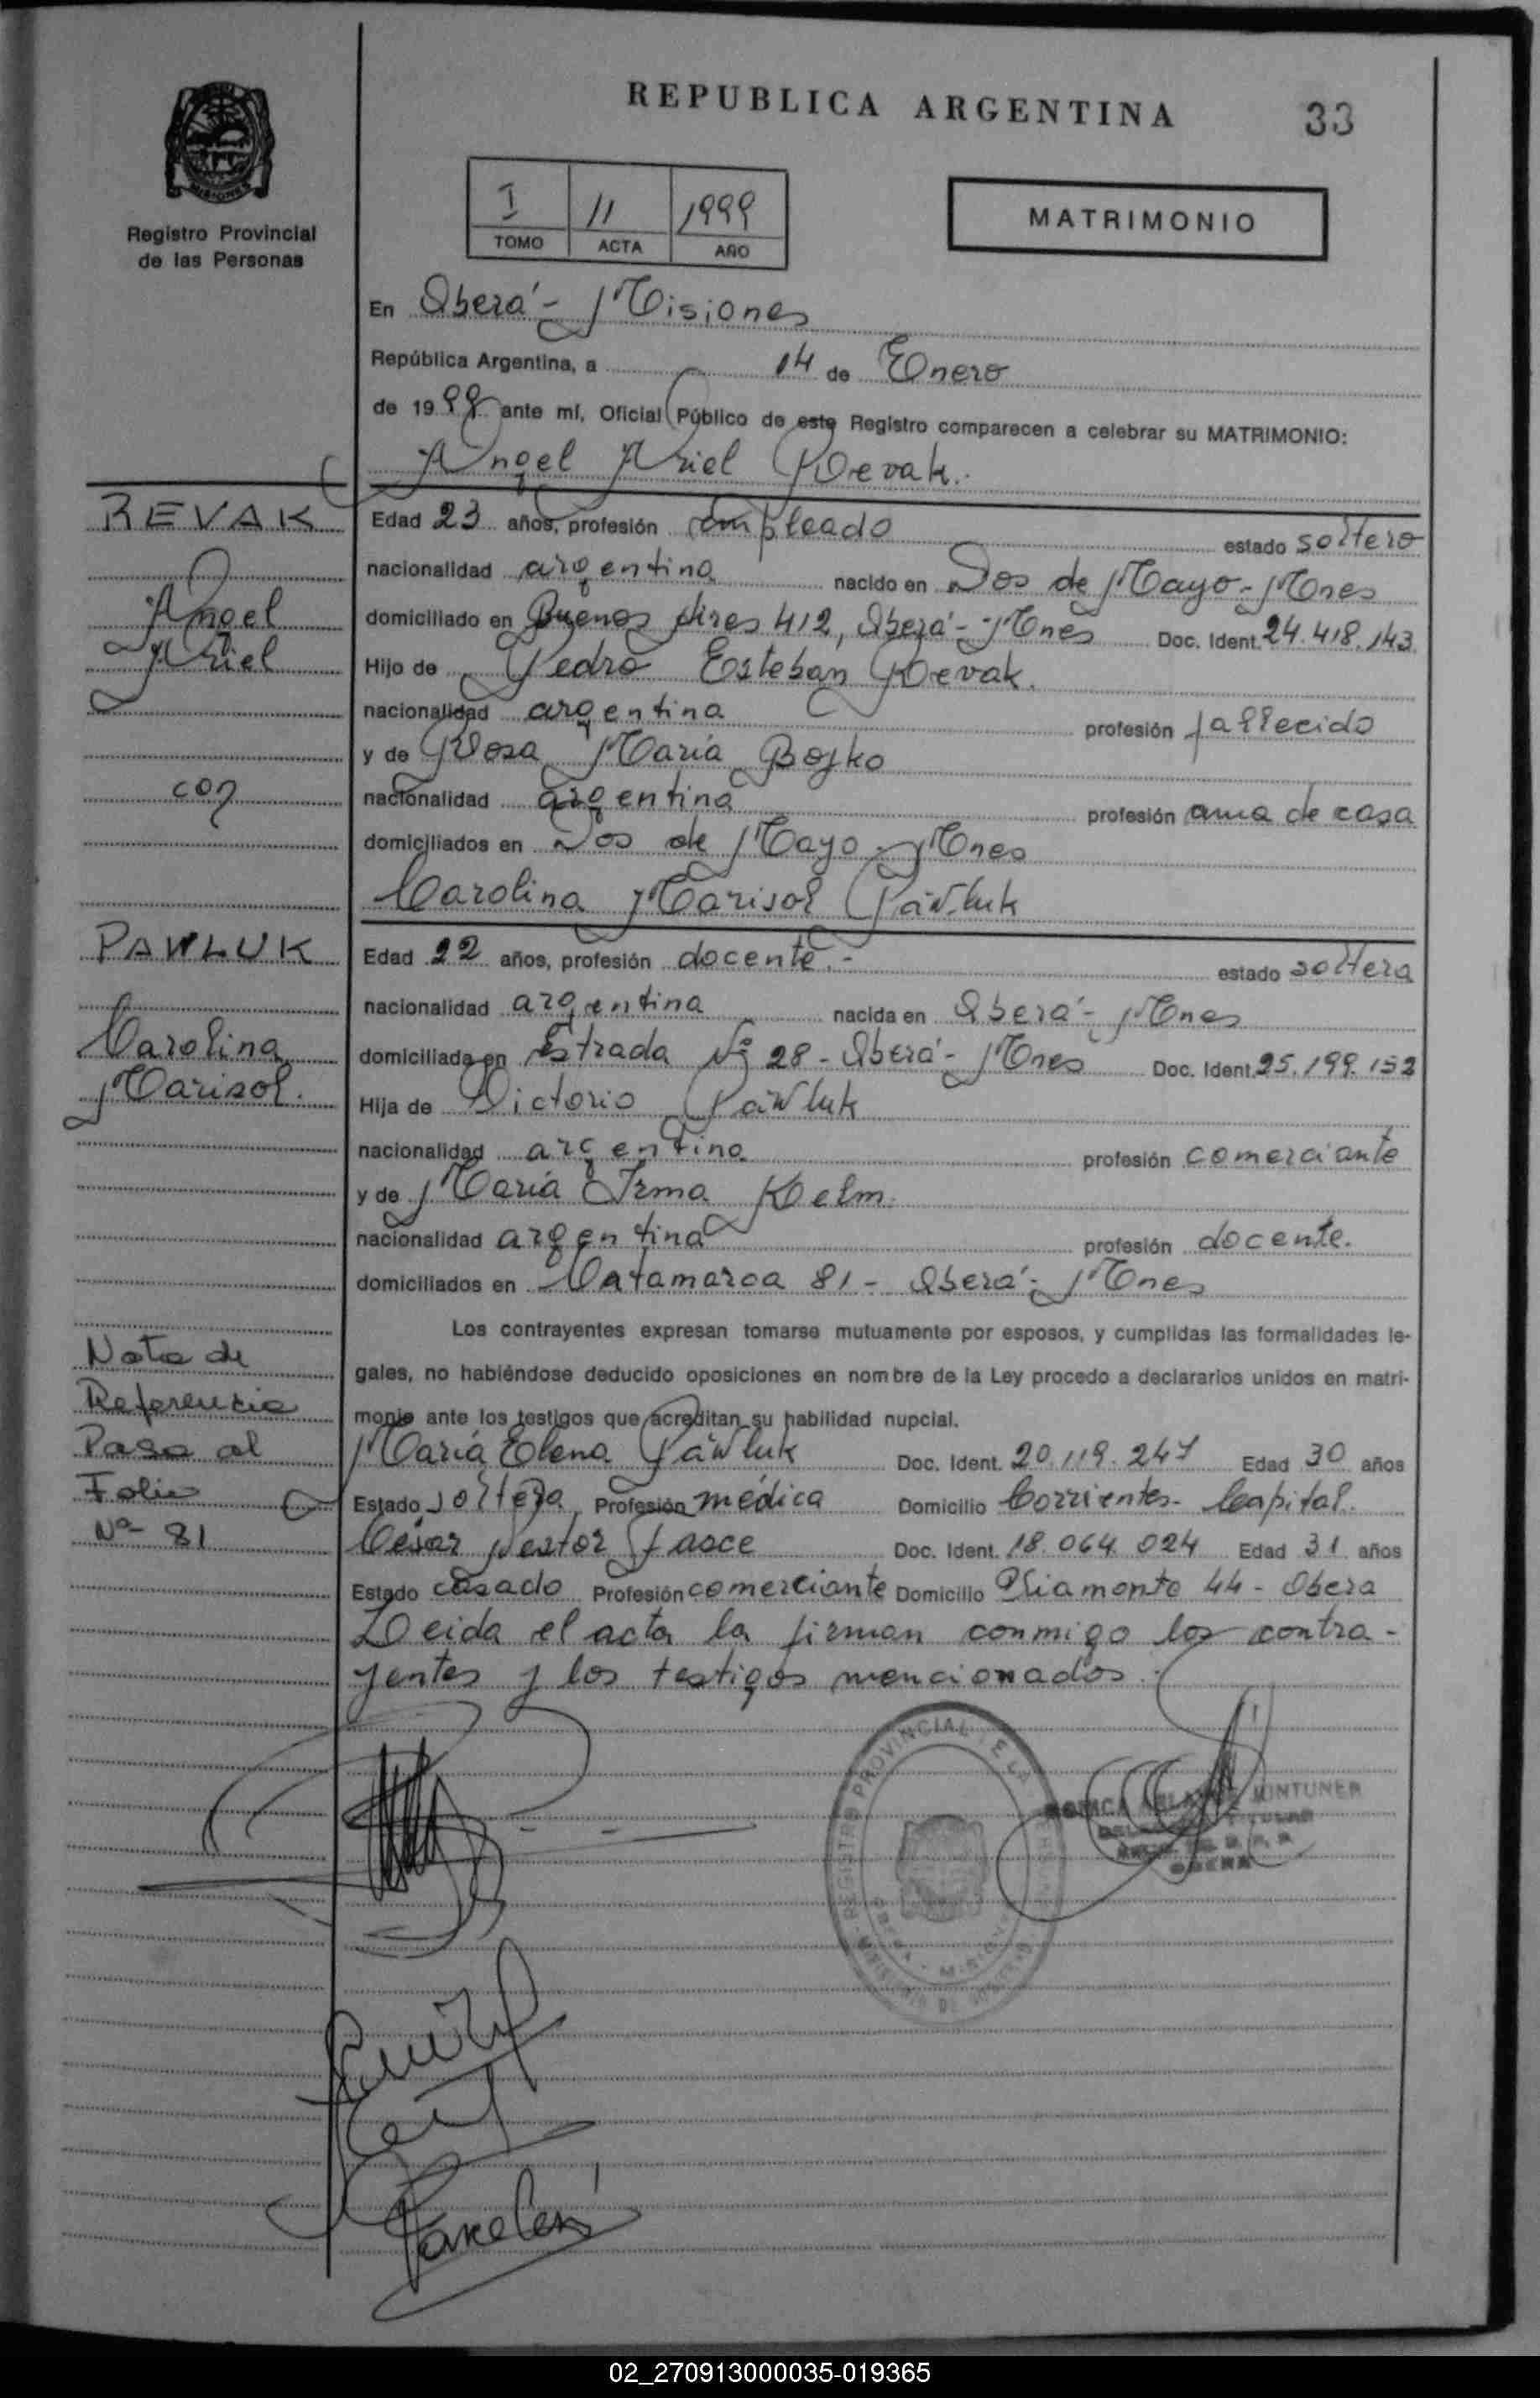 REPUBLICA ARGENTINA
33
Registro Provincial
de las Personas
I 11 1999
TOMO ACTA AÑO
MATRIMONIO
En Oberá - Misiones
República Argentina, a 14 de Enero
de 1999 ante mí, Oficial Público de este Registro comparecen a celebrar su MATRIMONIO:
Angel Ariel Revak.
REVAK
Angel
Ariel
con
Edad 23 años, profesión empleado estado soltero
nacionalidad argentina nacido en Dos de Mayo - Mnes
domiciliado en Buenos Aires 412, Oberá - Mnes Doc. Ident. 24.418.143.
Hijo de Pedro Esteban Revak.
nacionalidad argentina profesión fallecido
y de Rosa María Bojko
nacionalidad argentina profesión ama de casa
domiciliados en Dos de Mayo - Mnes
Carolina Marisol Pawluk
PAWLUK
Carolina
Marisol.
Edad 22 años, profesión docente.- estado soltera
nacionalidad argentina nacida en Oberá - Mnes
domiciliada en Estrada Nº 28 - Oberá - Mnes Doc. Ident. 25.199.152
Hija de Victorio Pawluk
nacionalidad argentina profesión comerciante
y de María Irma Kelm.
nacionalidad argentina profesión docente.
domiciliados en Catamarca 81 - Oberá - Mnes
Los contrayentes expresan tomarse mutuamente por esposos, y cumplidas las formalidades le-
gales, no habiéndose deducido oposiciones en nombre de la Ley procedo a declararlos unidos en matri-
monio ante los testigos que acreditan su habilidad nupcial.
Nota de
Referencia
Pasa al
Folio
Nº 81
María Elena Pawluk Doc. Ident. 20.119.247 Edad 30 años
Estado soltera Profesión médica Domicilio Corrientes - Capital.
César Nestor Fasce Doc. Ident. 18.064.024 Edad 31 años
Estado casado Profesión comerciante Domicilio Viamonte 44 - Obera
Leida el acta la firman conmigo los contra-
yentes y los testigos mencionados.
REGISTRO PROVINCIAL DE LAS
OBERA - MISIONES
MINISTERIO DE GOBIERNO
OBERA
02_270913000035-019365